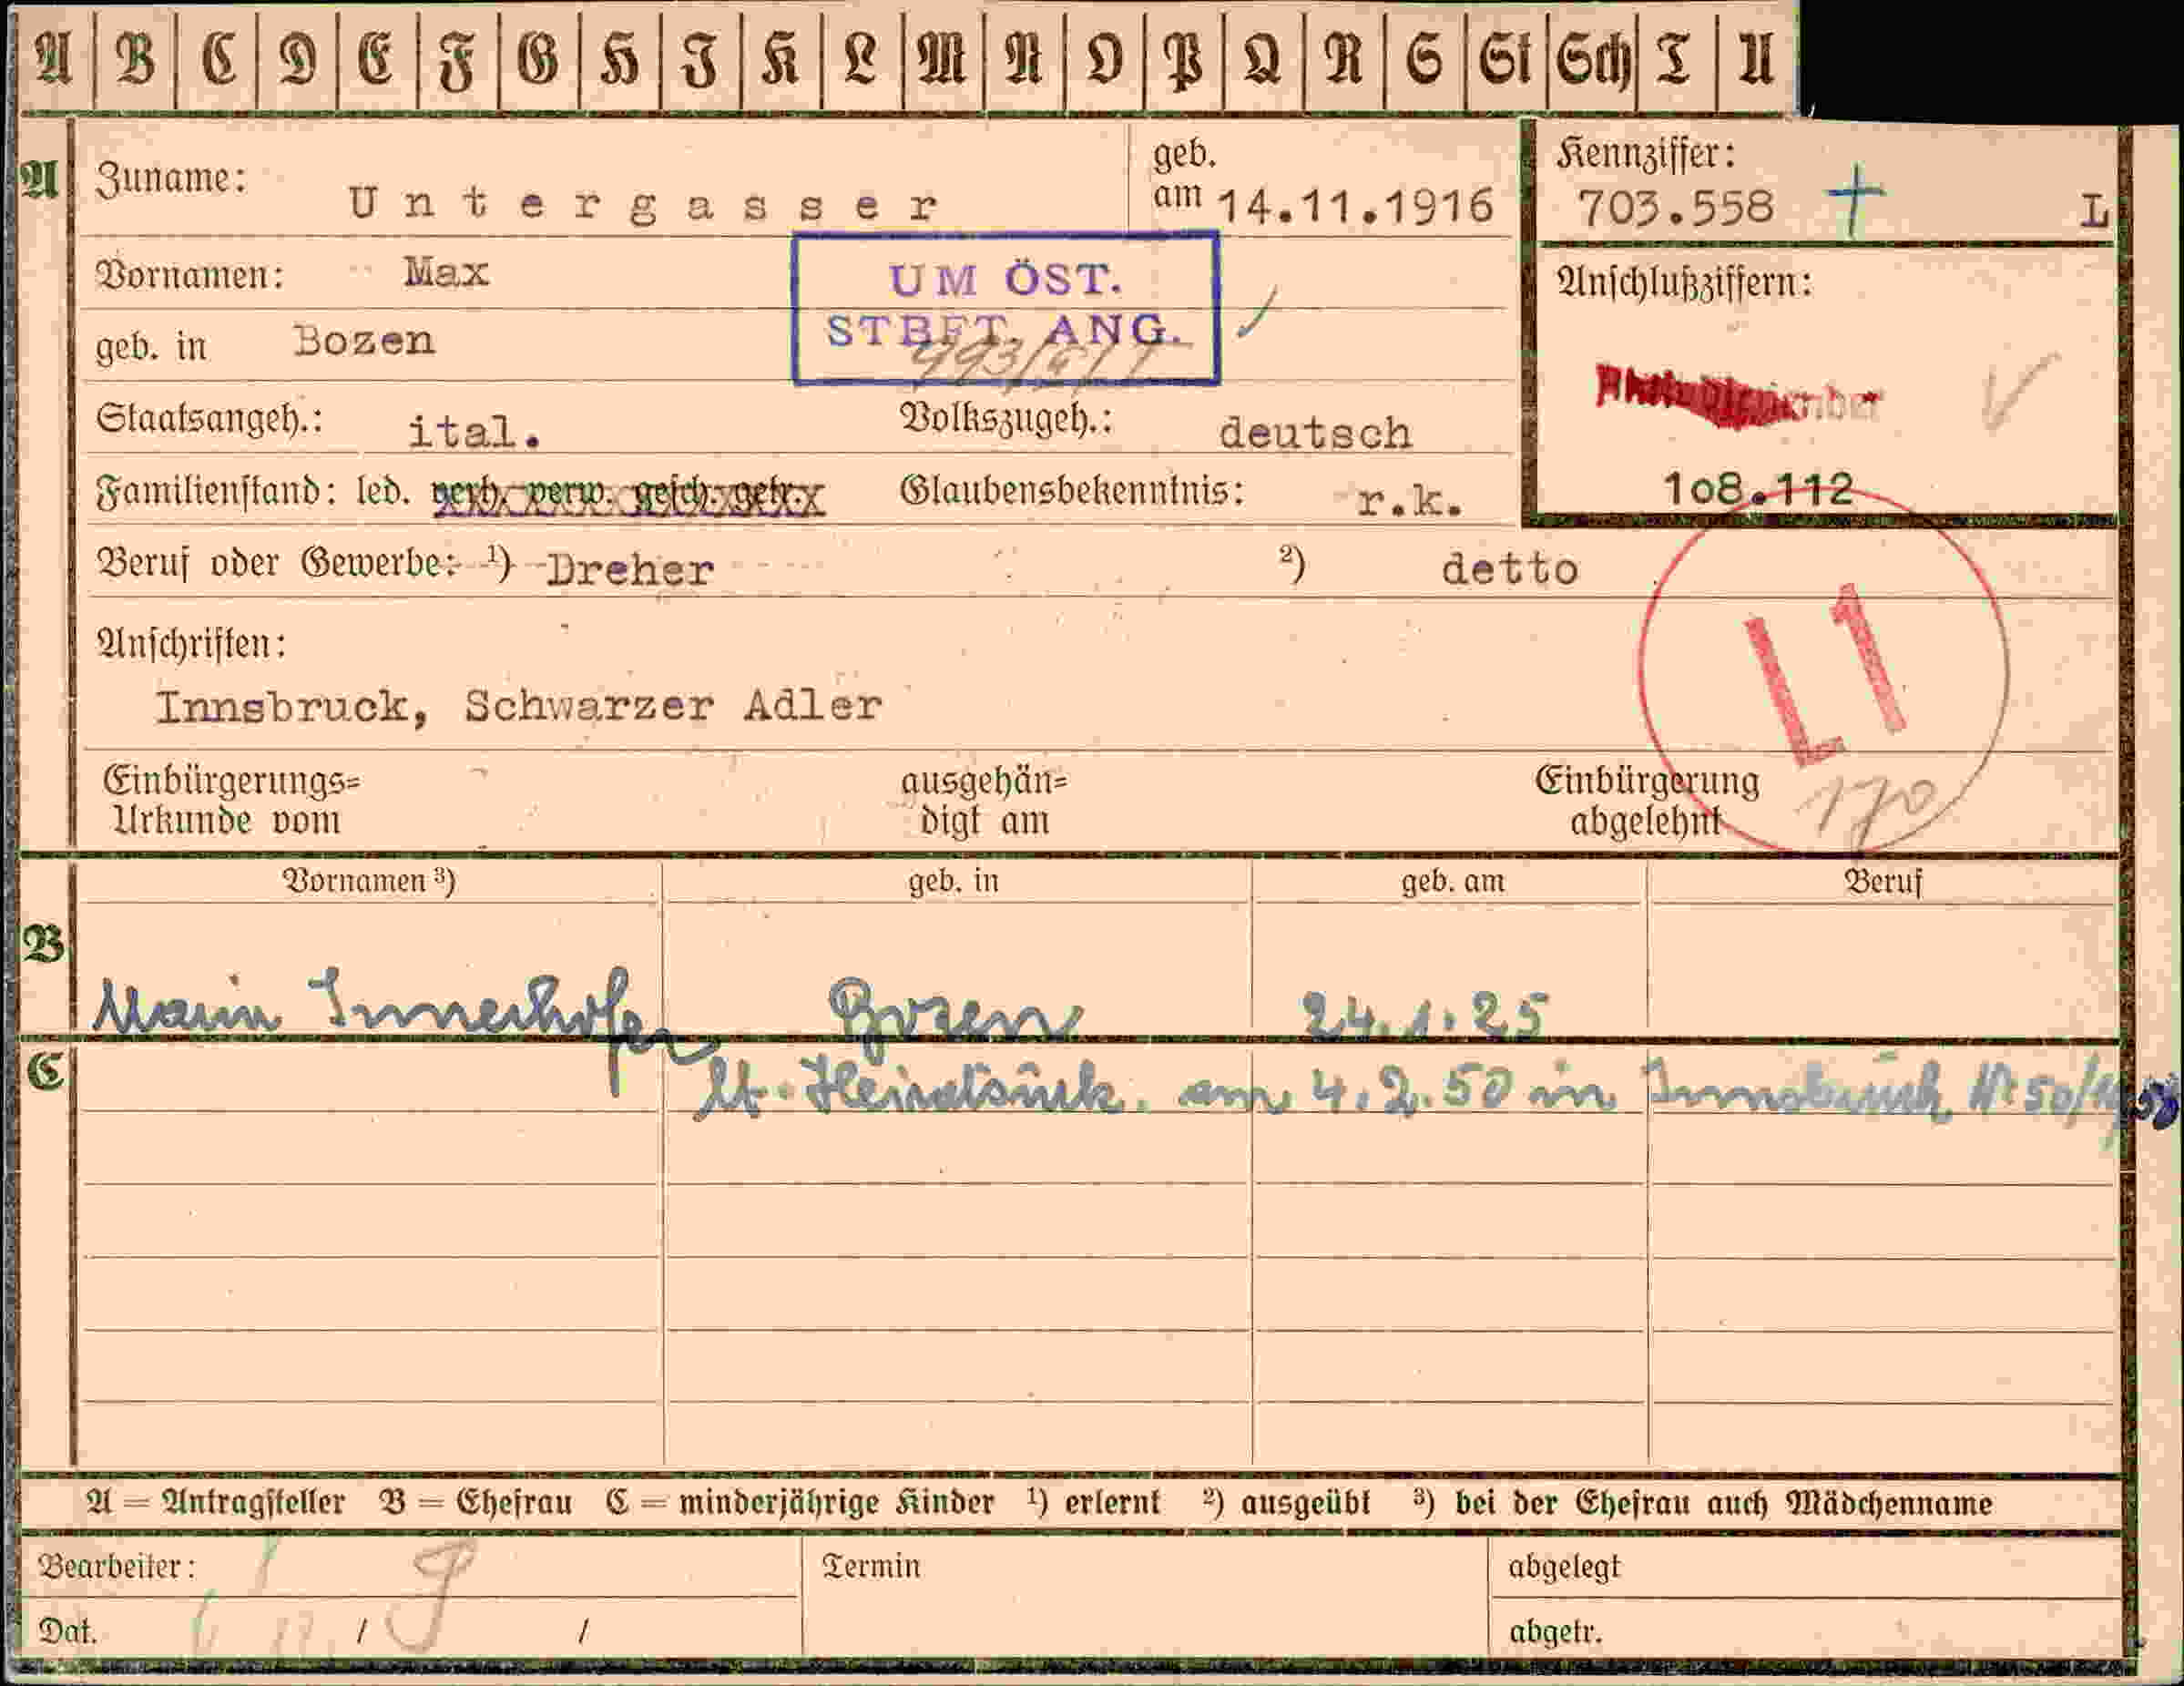 A B C D E F G H I K L M N O P Q R S St Sch T U
A
Zuname: Untergasser
geb. am 14.11.1916
Kennziffer:
703.558 L
Vornamen: Max
UM ÖST.
STBFT. ANG.
Anschlußziffern:
108.112
geb. in Bozen
Staatsangeh.: ital. Volkszugeh.: deutsch
Familienstand: led. verh. verw. gesch. getr. Glaubensbekenntnis: r.k.
Beruf oder Gewerbe: 1) Dreher 2) detto
Anschriften:
L1
Innsbruck, Schwarzer Adler
Einbürgerungs= ausgehän= Einbürgerung
Urkunde vom digt am abgelehnt 170
Vornamen 3) geb. in geb. am Beruf
B
Maria Innerhofer Bozen 24.1.25
C
lt. Heiratsurk. am 4.2.50 in Innsbruck
A = Antragsteller B = Ehefrau C = minderjährige Kinder 1) erlernt 2) ausgeübt 3) bei der Ehefrau auch Mädchenname
Bearbeiter: Termin abgelegt
Dat. / / abgetr.